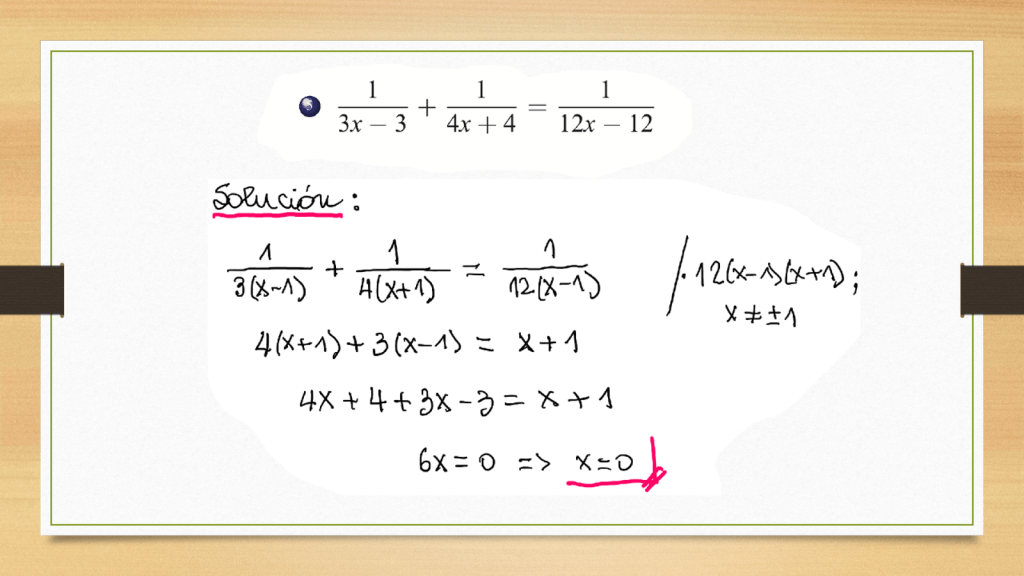 1/(3x − 3) + 1/(4x + 4) = 1/(12x − 12)
Solución:
1/(3(x-1)) + 1/(4(x+1)) = 1/(12(x-1)) /·12(x-1)(x+1);
x≠±1
4(x+1)+3(x-1) = x+1
4x+4+3x-3 = x+1
6x=0 => x=0